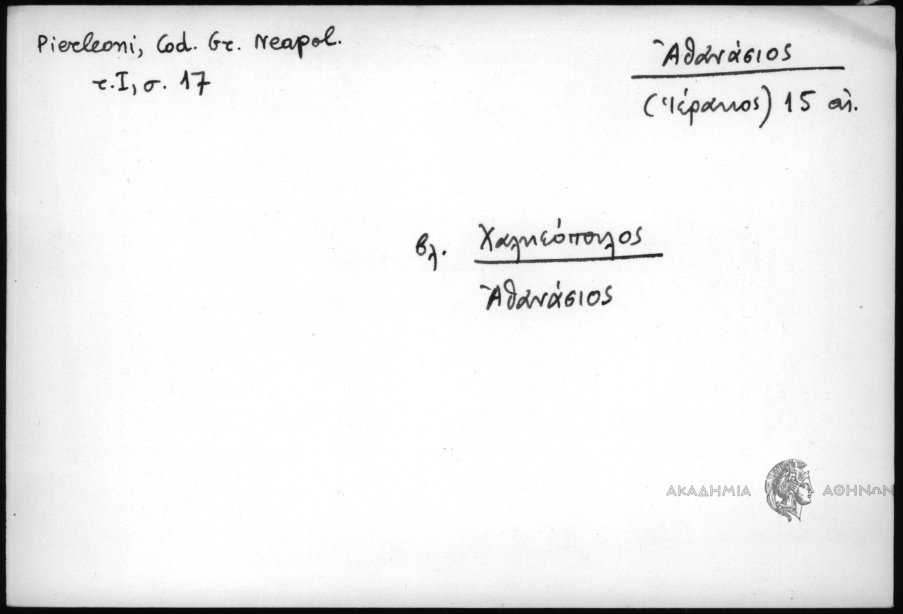 Pierleoni, Cod. Gr. Neapol.
τ. I, σ. 17
Ἀθανάσιος
(Ἱέρακος) 15 αἰ.
βλ. Χαλκεόπουλος
Ἀθανάσιος
ΑΚΑΔΗΜΙΑ ΑΘΗΝΩΝ